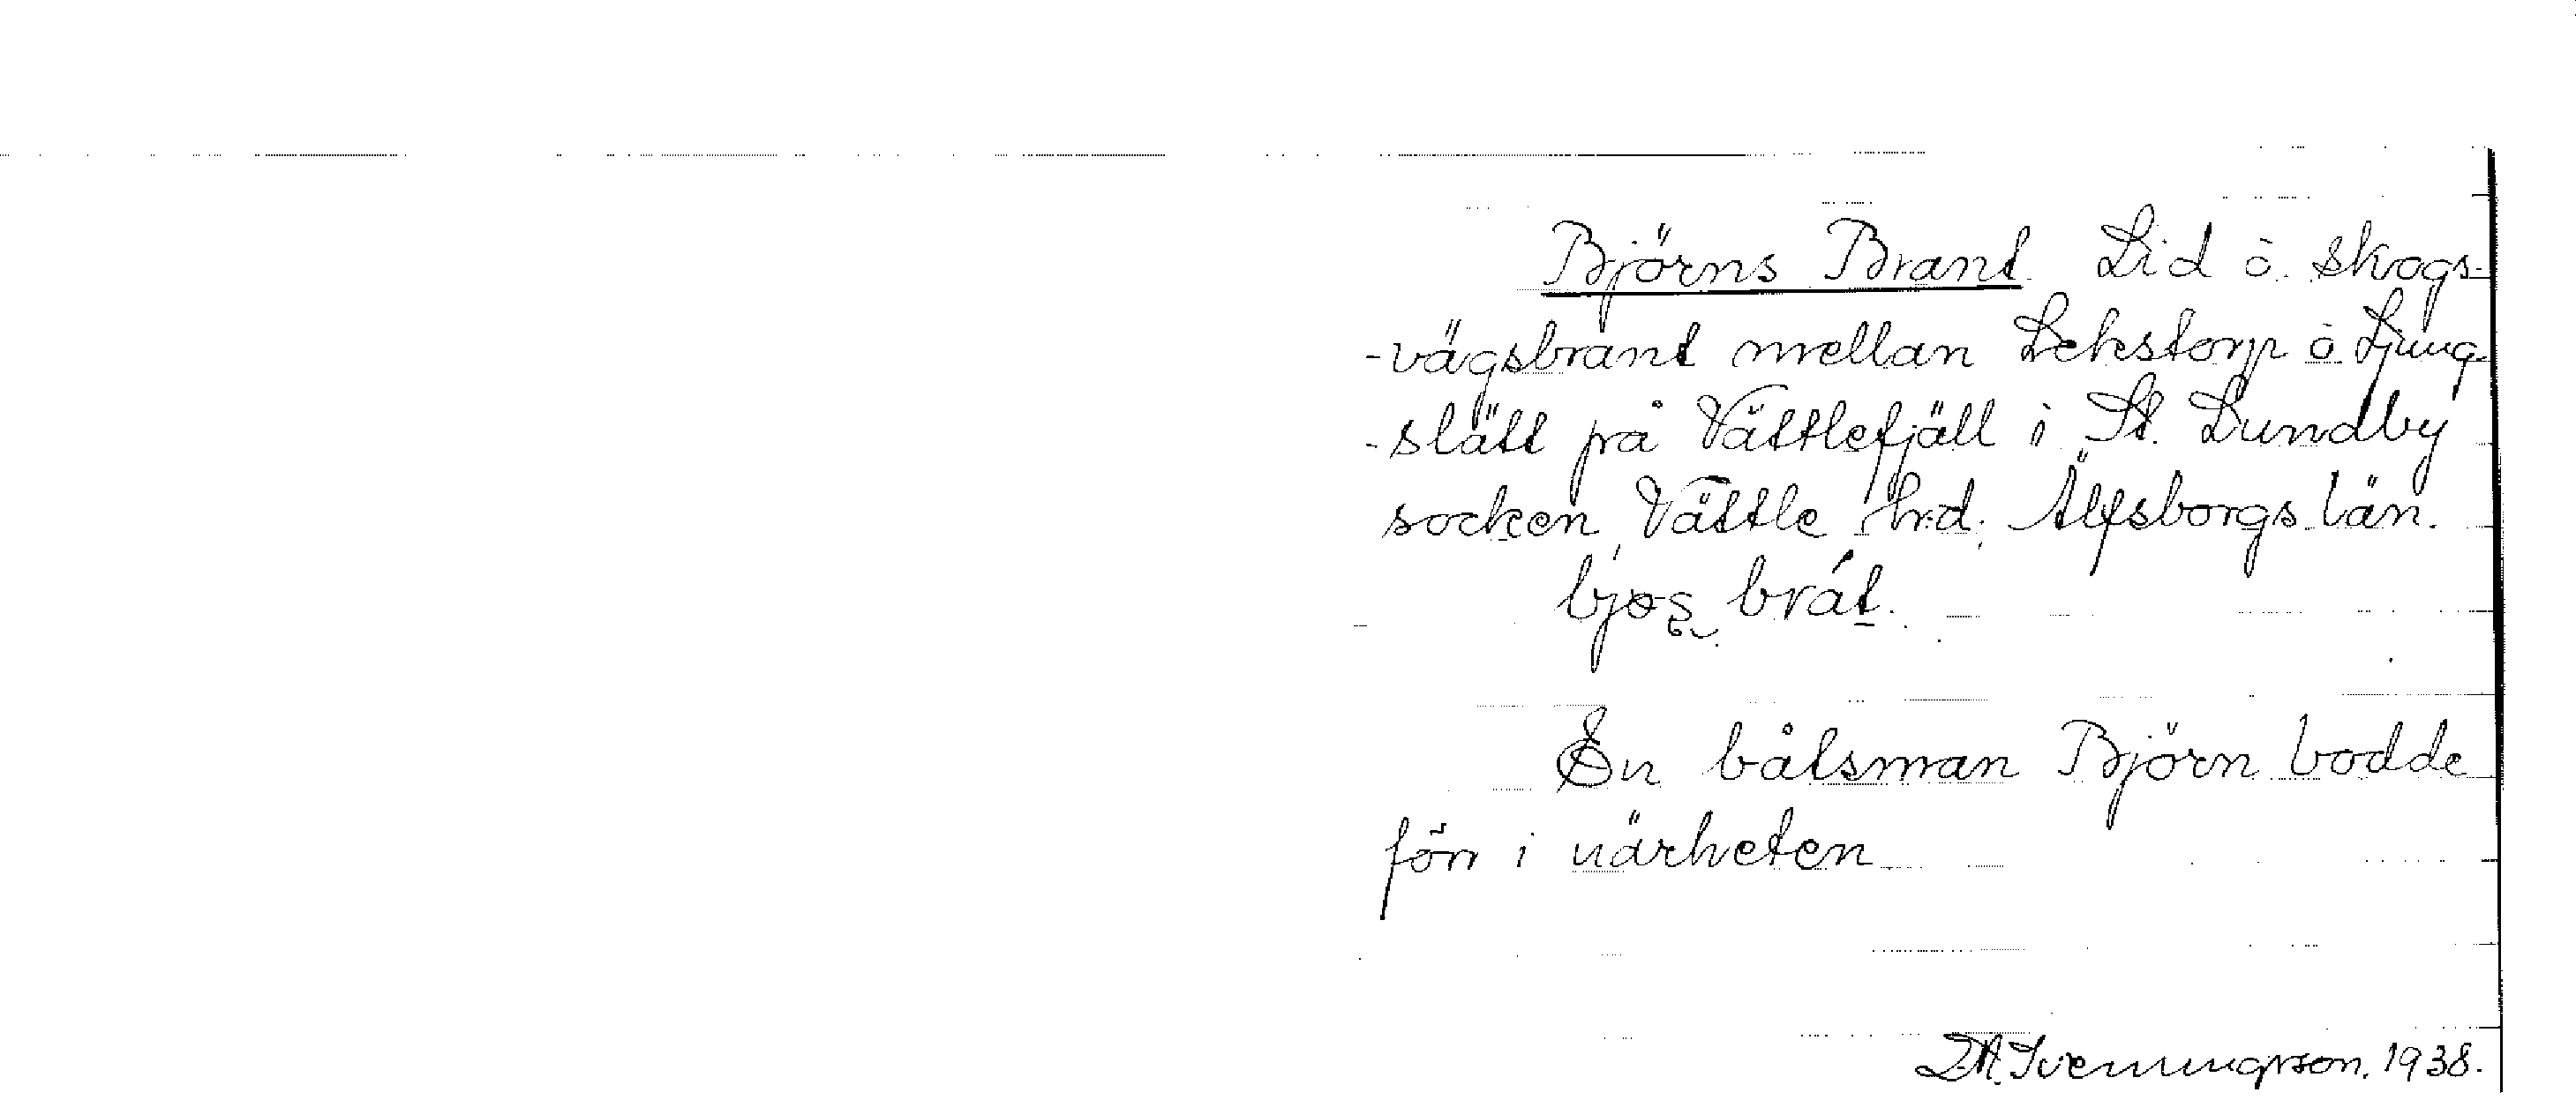 Björns Brant. Lid o. skogs-
-vägsbrant mellan Lekstorp o. Ljung-
-slätt på Vättlefjäll i St. Lundby
socken, Vättle hrd. Älfsborgs län.
bråt.
En båtsman Björn bodde
förr i närheten
1938.